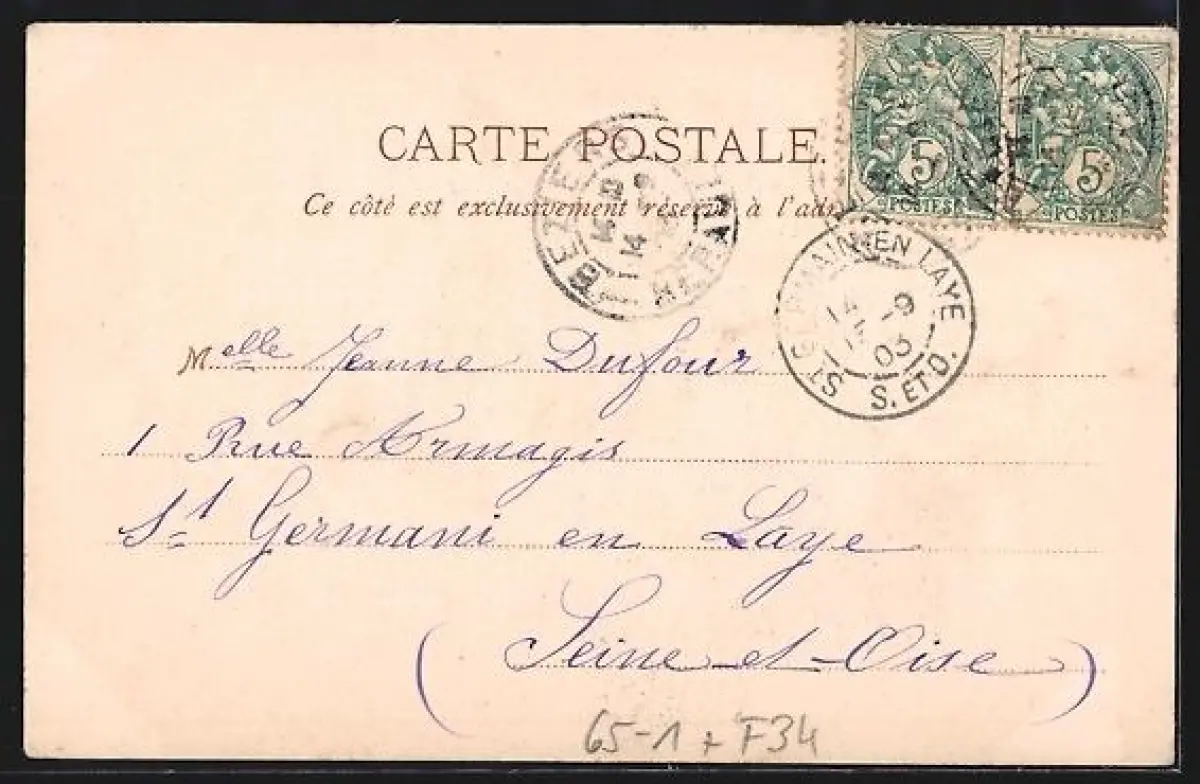 CARTE POSTALE.
Ce côté est exclusivement réservé à l'adr
5c 5c
POSTES POSTES
BEZIERS
HERAULT
14
ST GERMAIN EN LAYE
14 -9
03
S. ET O.
Melle Jeanne Dufour
1 Rue Armagis
St Germani en Laye
(Seine-et-Oise)
65-1 + F34